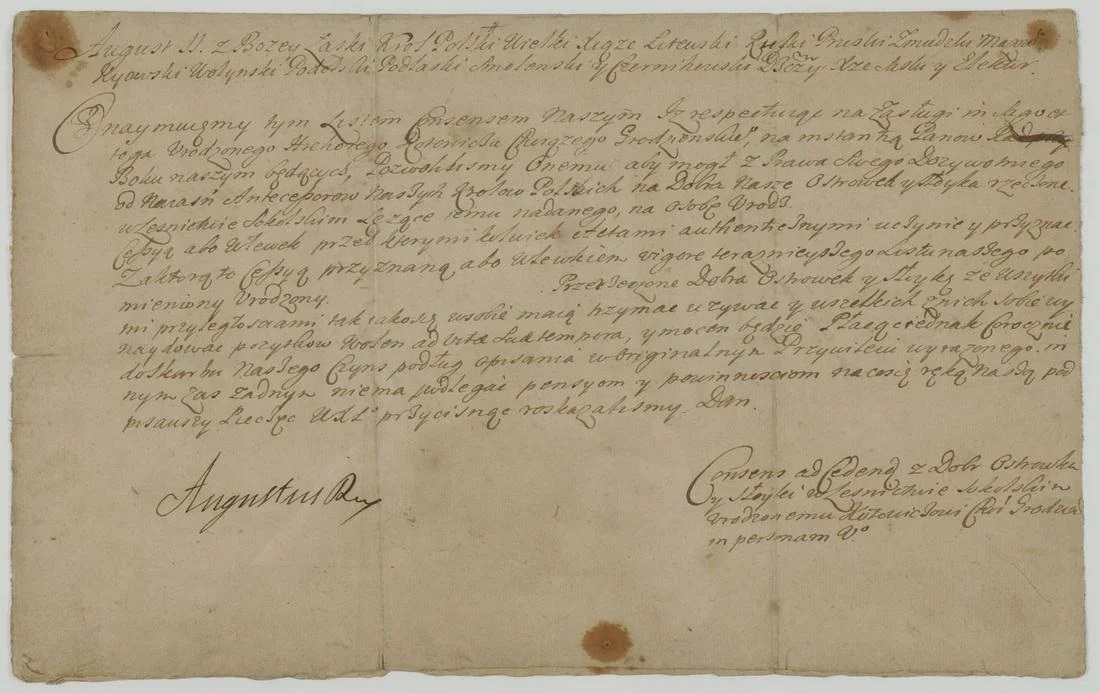 August II. z Bozey Łaski Krol Polski Wielki Xiąze Litewski Ruski Pruski Zmudzki Mazo
Kyowski Wołynski Podolski Podlaski Smolenski y Czernihowski Dźčzy. Xże Saski y Elektor.
Oznaymuiemy tym Listem Consensem Naszym Iz respektuiąc na Zasługi in
Urodzonego Kotowicza Chorązego Grodzienskie°, na instantią Panow Rad
Boku naszym będących, Pozwolilismy Onemu aby mogł z Prawa Swego Dozywotniego
od Naiaśń Antecessorow Naszych Krolow Polskich na Dobra Nasze Ostrowek y Słoyka rzeczone
w Lesnictwie Sokolskim Lezące iemu nadanego, na Osobę Urodz.
Cessyą abo Wlewek przed ktorymi kolwiek aktami authentycznymi uczynic y przyznac
Za ktorą to Cessyą przyznaną abo Wlewkiem vigore teraznieyszego Listu naszego po
mieniony Urodzony. Przerzeczone Dobra Ostrowek y Słoykę ze wszytki
mi przyległosciami tak iako są w sobie maią trzymac uzywac y wszelkich z nich sobie wy
naydowac pozytkow wolen ad vitæ suæ tempora, y mocen będzie Płacąc iednak Corocznie
do skarbu Naszego Czynsz podług opisania w Originalnym Przywileiu wyrazonego. in
nym zas Zadnym niema podlegac pensyom y powinnosciom na co się ręką Naszą pod
pisawszy Pieczęc WXL° przycisnąc roskazalismy. Dan.
Augustus Rex
Consens ad Cedend z Dobr Ostrowka
y Słoyki w Lesnictwie Sokolskim
Urodzonemu Kotowiczowi Chor Grodzień
in personam V°